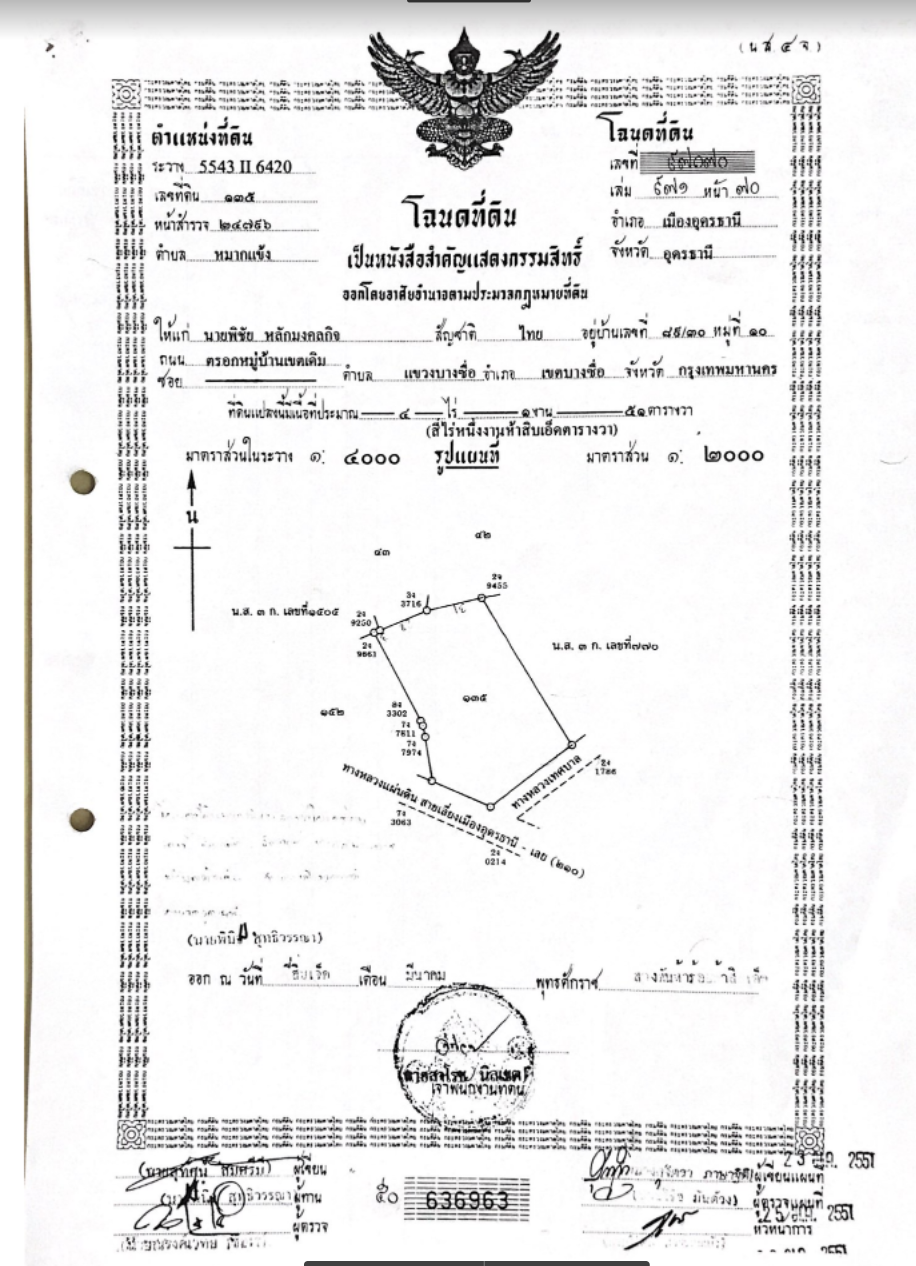 (น.ส. ๔ จ.)
ตำแหน่งที่ดิน
ระวาง 5543 II 6420
เลขที่ดิน ๑๓๕
หน้าสำรวจ ๒๔๗๙๖
ตำบล หมากแข้ง
โฉนดที่ดิน
เลขที่ ๕๗๐๗๐
เล่ม ๕๗๑ หน้า ๗๐
อำเภอ เมืองอุดรธานี
จังหวัด อุดรธานี
โฉนดที่ดิน
เป็นหนังสือสำคัญแสดงกรรมสิทธิ์
ออกโดยอาศัยอำนาจตามประมวลกฎหมายที่ดิน
ให้แก่ นายพิชัย หลักมงคลกิจ สัญชาติ ไทย อยู่บ้านเลขที่ ๘๙/๓๐ หมู่ที่ ๑๐
ถนน ตรอกหมู่บ้านเขตเดิม
ซอย ตำบล แขวงบางซื่อ อำเภอ เขตบางซื่อ จังหวัด กรุงเทพมหานคร
ที่ดินแปลงนี้มีเนื้อที่ประมาณ ๔ ไร่ ๑ งาน ๕๑ ตารางวา
(สี่ไร่หนึ่งงานห้าสิบเอ็ดตารางวา)
มาตราส่วนในระวาง ๑: ๔๐๐๐ รูปแผนที่ มาตราส่วน ๑: ๒๐๐๐
น
๔๓
๔๒
2จ
9455
3จ
3716
น.ส. ๓ ก. เลขที่๑๔๐๕
2จ
9250
2จ
9661
น.ส. ๓ ก. เลขที่๗๗๐
๑๓๕
๑๕๒
8จ
3302
7จ
7811
7จ
7974
2จ
1786
ทางหลวงเทศบาล
ทางหลวงแผ่นดิน สายเลี่ยงเมืองอุดรธานี - เลย (๒๑๐)
7จ
3063
2จ
0214
สุทธิวรรณา)
ออก ณ วันที่ ยี่สิบเจ็ด เดือน มีนาคม พุทธศักราช
เจ้าพนักงานที่ดิน
ผู้เขียน
สุทธิวรรณา ผู้ทาน
ผู้ตรวจ
๕๐ 636963
ผู้เขียนแผนที่
ผู้ตรวจแผนที่
หัวหน้าการ
2551
2551
2551